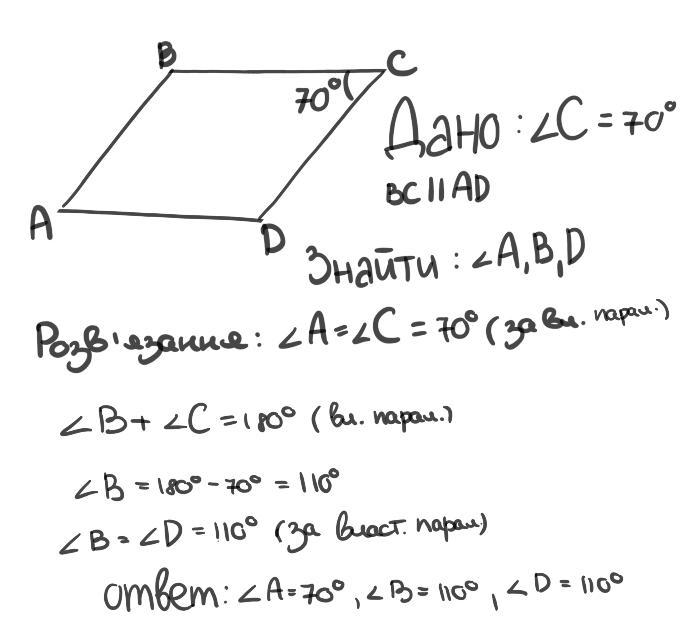 B
C
70°
Дано : ∠C = 70°
BC || AD
A
D
Знайти : ∠A, B, D
Розв'язання: ∠A = ∠C = 70° (за вл. парал.)
∠B + ∠C = 180° (вл. парал.)
∠B = 180° - 70° = 110°
∠B = ∠D = 110° (за власт. парал)
ответ: ∠A = 70°, ∠B = 110°, ∠D = 110°